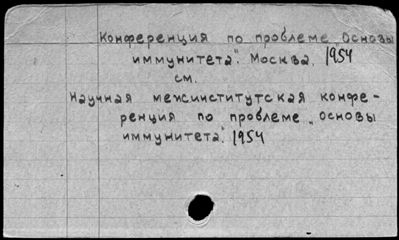 Конференция по проблеме Основы
иммунитета". Москва. 1954
см.
Научная межинститутская конфе-
ренция по проблеме „основы
иммунитета". 1954